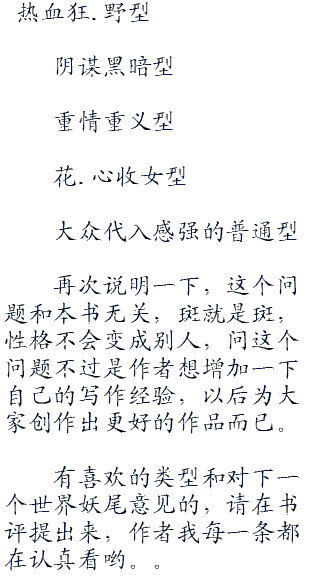 热血狂.野型
阴谋黑暗型
重情重义型
花.心收女型
大众代入感强的普通型
再次说明一下，这个问
题和本书无关，斑就是斑，
性格不会变成别人，问这个
问题不过是作者想增加一下
自己的写作经验，以后为大
家创作出更好的作品而已。
有喜欢的类型和对下一
个世界妖尾意见的，请在书
评提出来，作者我每一条都
在认真看哟。。